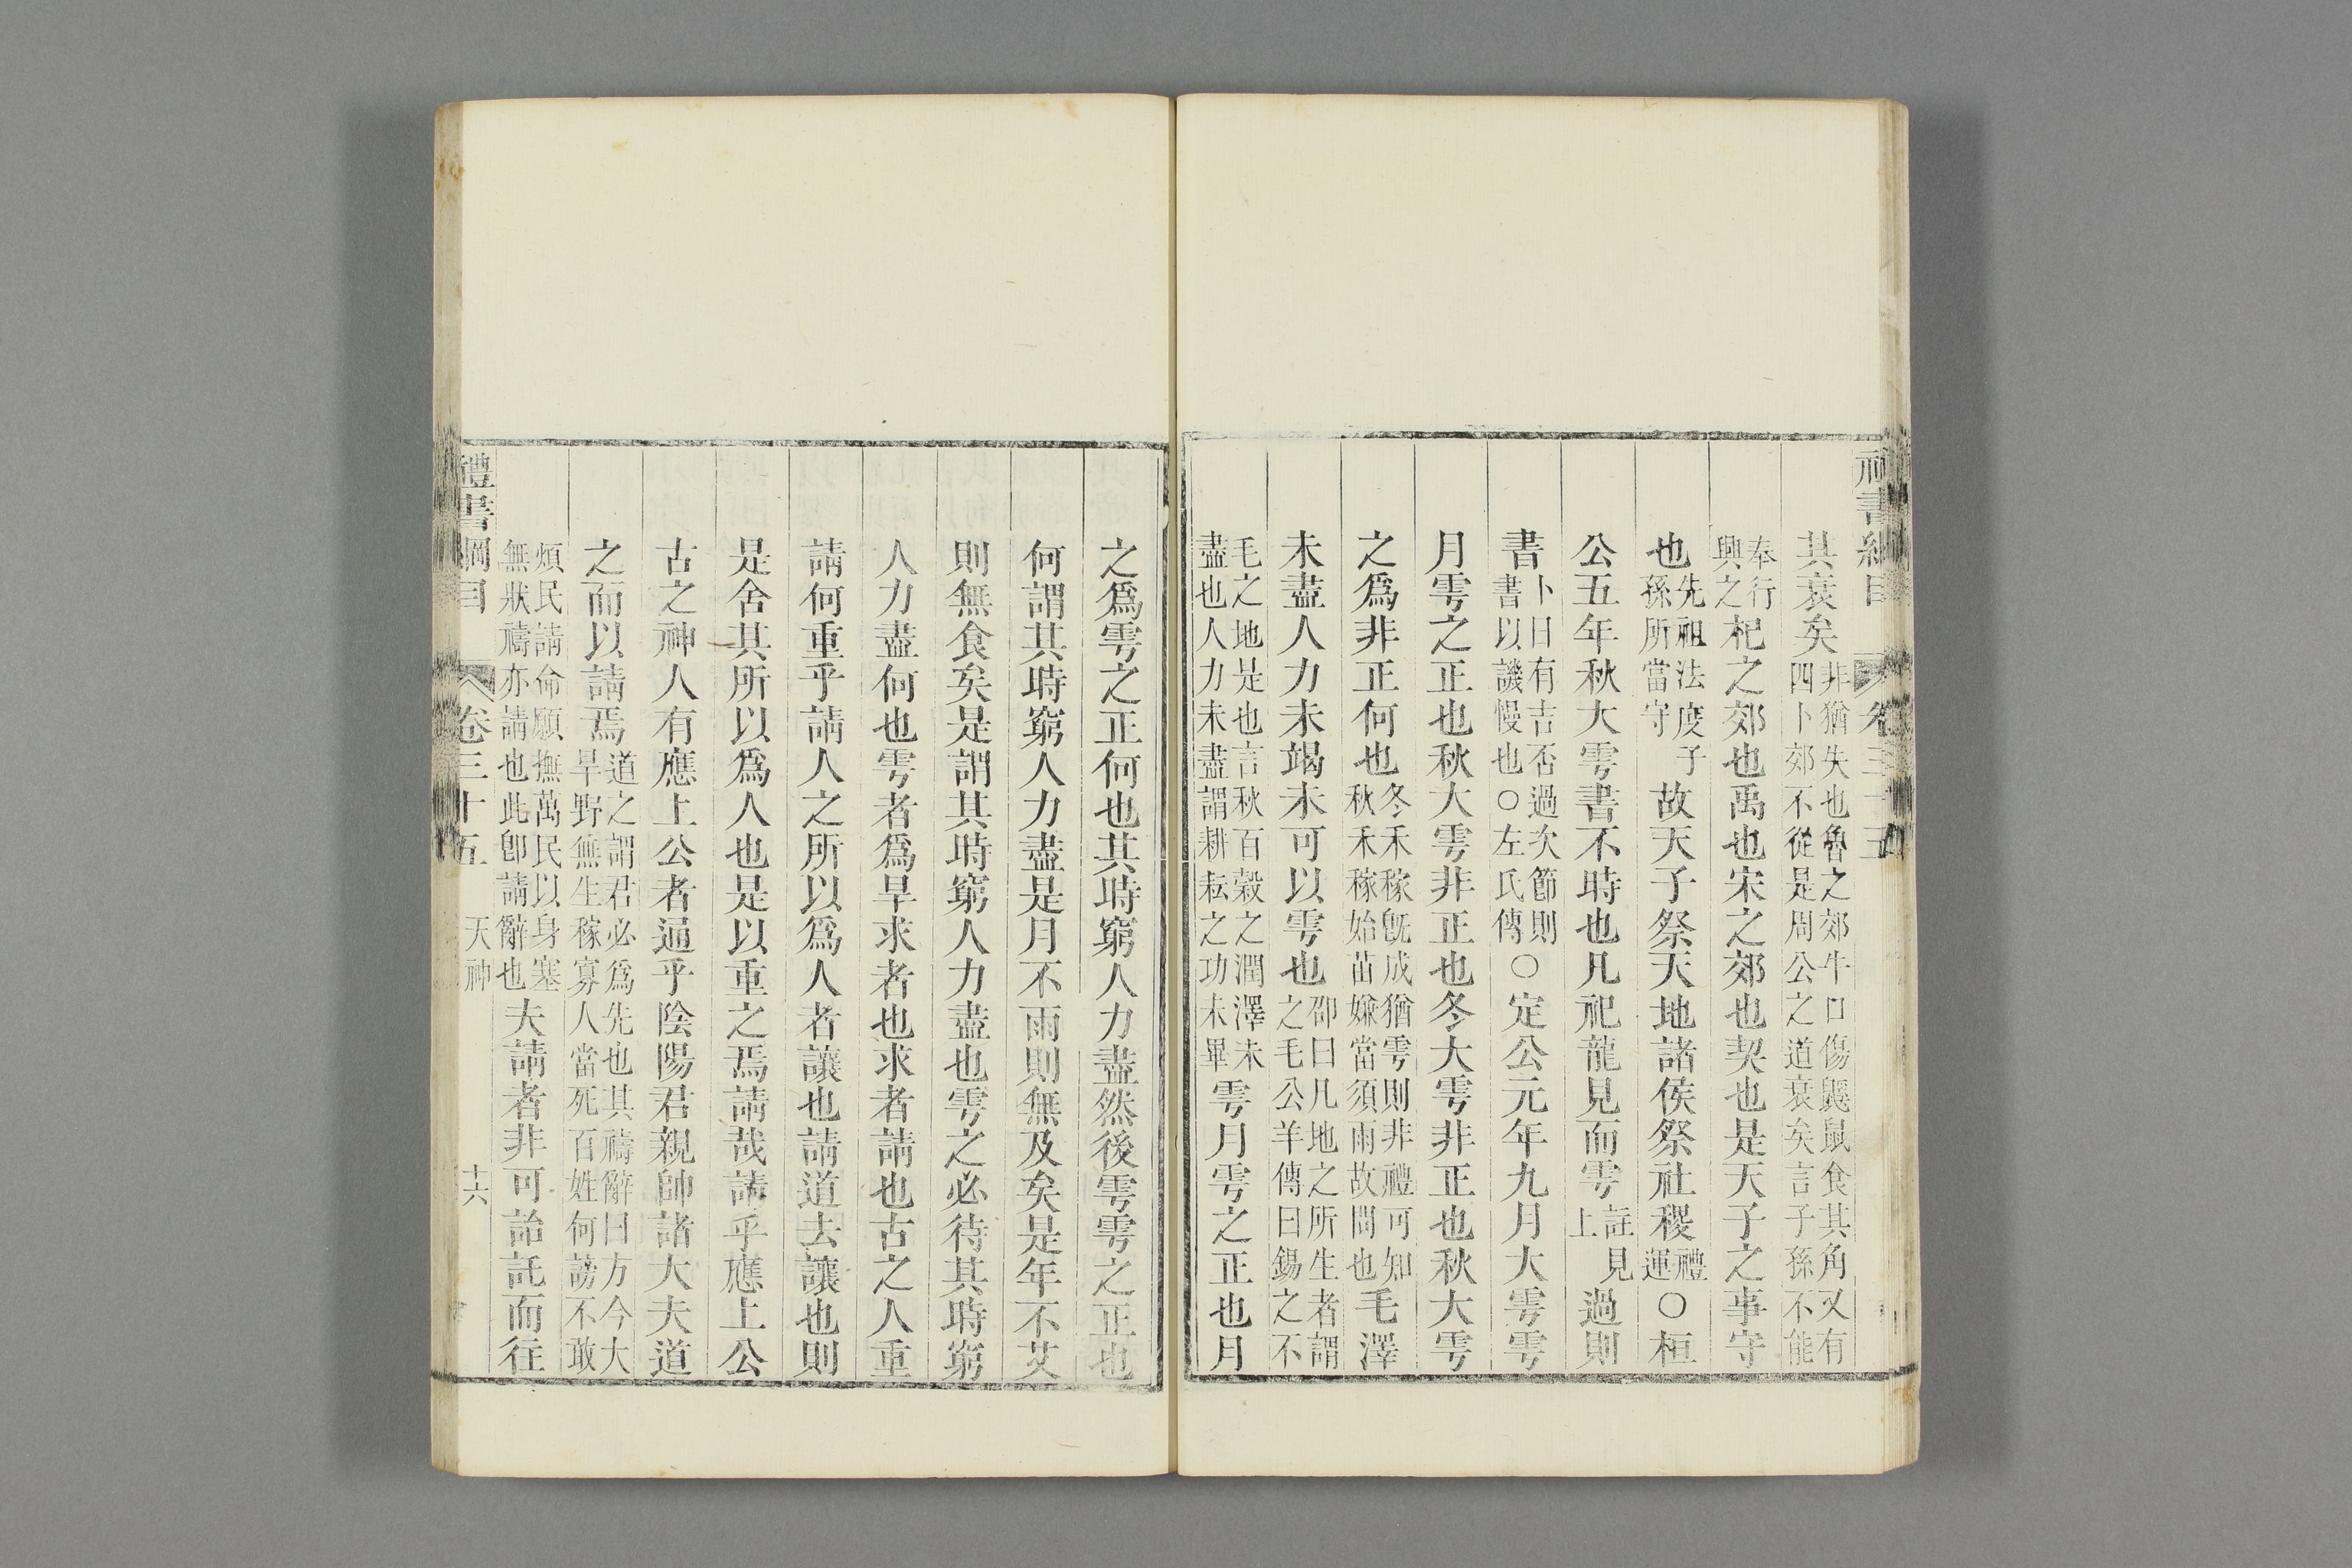 其衰矣非猶失也魯之郊牛口傷鼷鼠食其角又有四卜郊不從是周公之道衰矣言子孫不能
奉行興之杞之郊也禹也宋之郊也契也是天子之事守
也先祖法度子孫所當守故天子祭天地諸侯祭社稷禮運○桓
公五年秋大雩書不時也凡祀龍見而雩註見上過則
書卜日有吉否過次節則書以譏慢也○左氏傳○定公元年九月大雩雩
月雩之正也秋大雩非正也冬大雩非正也秋大雩
之爲非正何也冬禾稼旣成猶雩則非禮可知秋禾稼始苗嫌當須雨故問也毛澤
未盡人力未竭未可以雩也邵曰凡地之所生者謂之毛公羊傳曰錫之不
毛之地是也言秋百穀之潤澤未盡也人力未盡謂耕耘之功未畢雩月雩之正也月
之爲雩之正何也其時窮人力盡然後雩雩之正也
何謂其時窮人力盡是月不雨則無及矣是年不艾
則無食矣是謂其時窮人力盡也雩之必待其時窮
人力盡何也雩者爲旱求者也求者請也古之人重
請何重乎請人之所以爲人者讓也請道去讓也則
是舍其所以爲人也是以重之焉請哉請乎應上公
古之神人有應上公者通乎陰陽君親帥諸大夫道
之而以請焉道之謂君必爲先也其禱辭曰方今大旱野無生稼寡人當死百姓何謗不敢
煩民請命願撫萬民以身塞無狀禱亦請也此卽請辭也夫請者非可詒託而往
禮書綱目 卷三十五 天神 十六